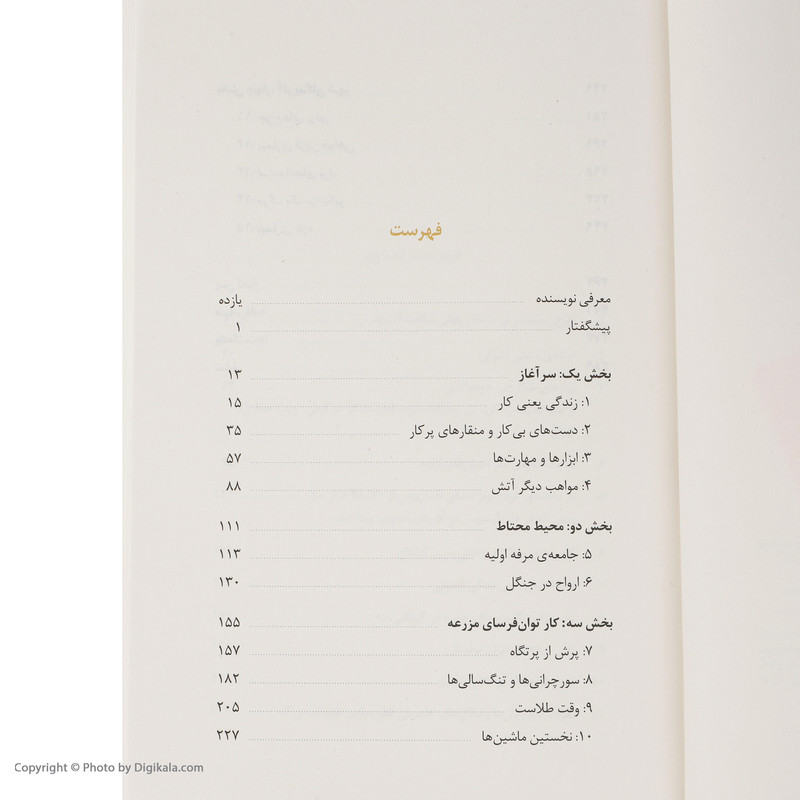 فهرست
معرفی نویسنده ........ یازده
پیشگفتار ........ ۱
بخش یک: سرآغاز ........ ۱۳
۱: زندگی یعنی کار ........ ۱۵
۲: دست‌های بی‌کار و منقارهای پرکار ........ ۳۵
۳: ابزارها و مهارت‌ها ........ ۵۷
۴: مواهب دیگر آتش ........ ۸۸
بخش دو: محیط محتاط ........ ۱۱۱
۵: جامعه‌ی مرفه اولیه ........ ۱۱۳
۶: ارواح در جنگل ........ ۱۳۰
بخش سه: کار توان‌فرسای مزرعه ........ ۱۵۵
۷: پرش از پرتگاه ........ ۱۵۷
۸: سورچرانی‌ها و تنگ‌سالی‌ها ........ ۱۸۲
۹: وقت طلاست ........ ۲۰۵
۱۰: نخستین ماشین‌ها ........ ۲۲۷
Copyright © Photo by Digikala.com